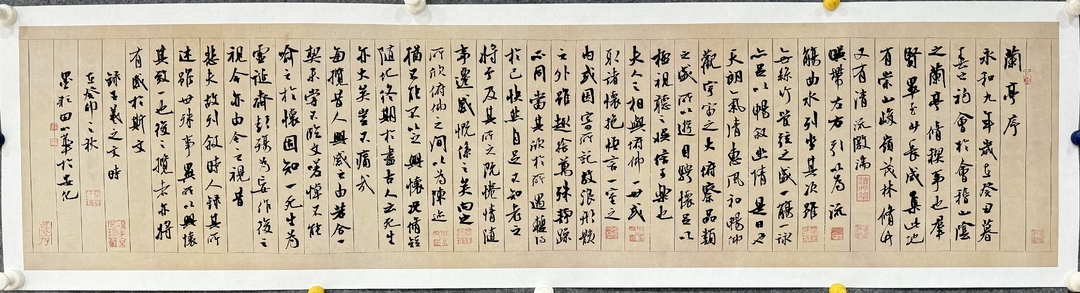 蘭亭序
永和九年歲在癸丑暮
春之初會於會稽山陰
之蘭亭修禊事也羣
賢畢至少長咸集此地
有崇山峻嶺茂林修竹
又有清流激湍
暎帶左右引以為流
觴曲水列坐其次雖
無絲竹管弦之盛一觴一詠
亦足以暢敘幽情是日也
天朗氣清惠風和暢仰
觀宇宙之大俯察品類
之盛所以遊目騁懷足以
極視聽之娛信可樂也
夫人之相與俯仰一世或
取諸懷抱悟言一室之
內或因寄所託放浪形骸
之外雖趣舍萬殊靜躁
不同當其欣於所遇暫得
於己快然自足不知老之
將至及其所之既惓情隨
事遷感慨係之矣向之
所欣俯仰之間以為陳迹
猶不能不以之興懷況修短
隨化終期於盡古人云死生
亦大矣豈不痛哉
每攬昔人興感之由若合一
契未嘗不臨文嗟悼不能
喻之於懷固知一死生為
虛誕齊彭殤為妄作後之
視今亦由今之視昔
悲夫故列敘時人錄其所
述雖世殊事異所以興懷
其致一也後之攬者亦將
有感於斯文
錄王羲之文時
在癸卯之秋
田小華於安化